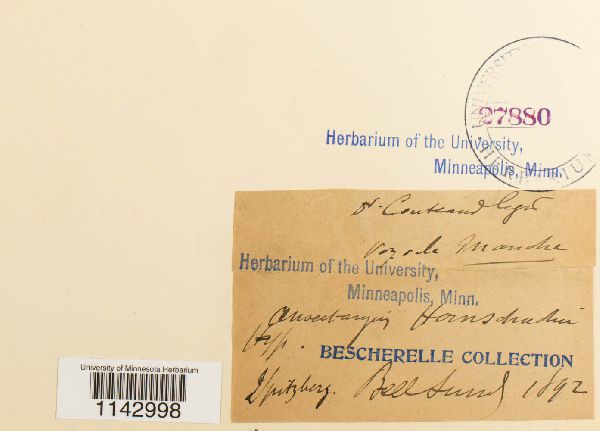 UNIVERSITY
HERBARIUM
27880
Herbarium of the University,
Minneapolis, Minn.
Dr Couteaud legit
Voy de la Manche
Herbarium of the University,
Minneapolis, Minn.
Hornschuchii
BESCHERELLE COLLECTION
Spitzberg. Bell Sund 1892
University of Minnesota Herbarium
1142998